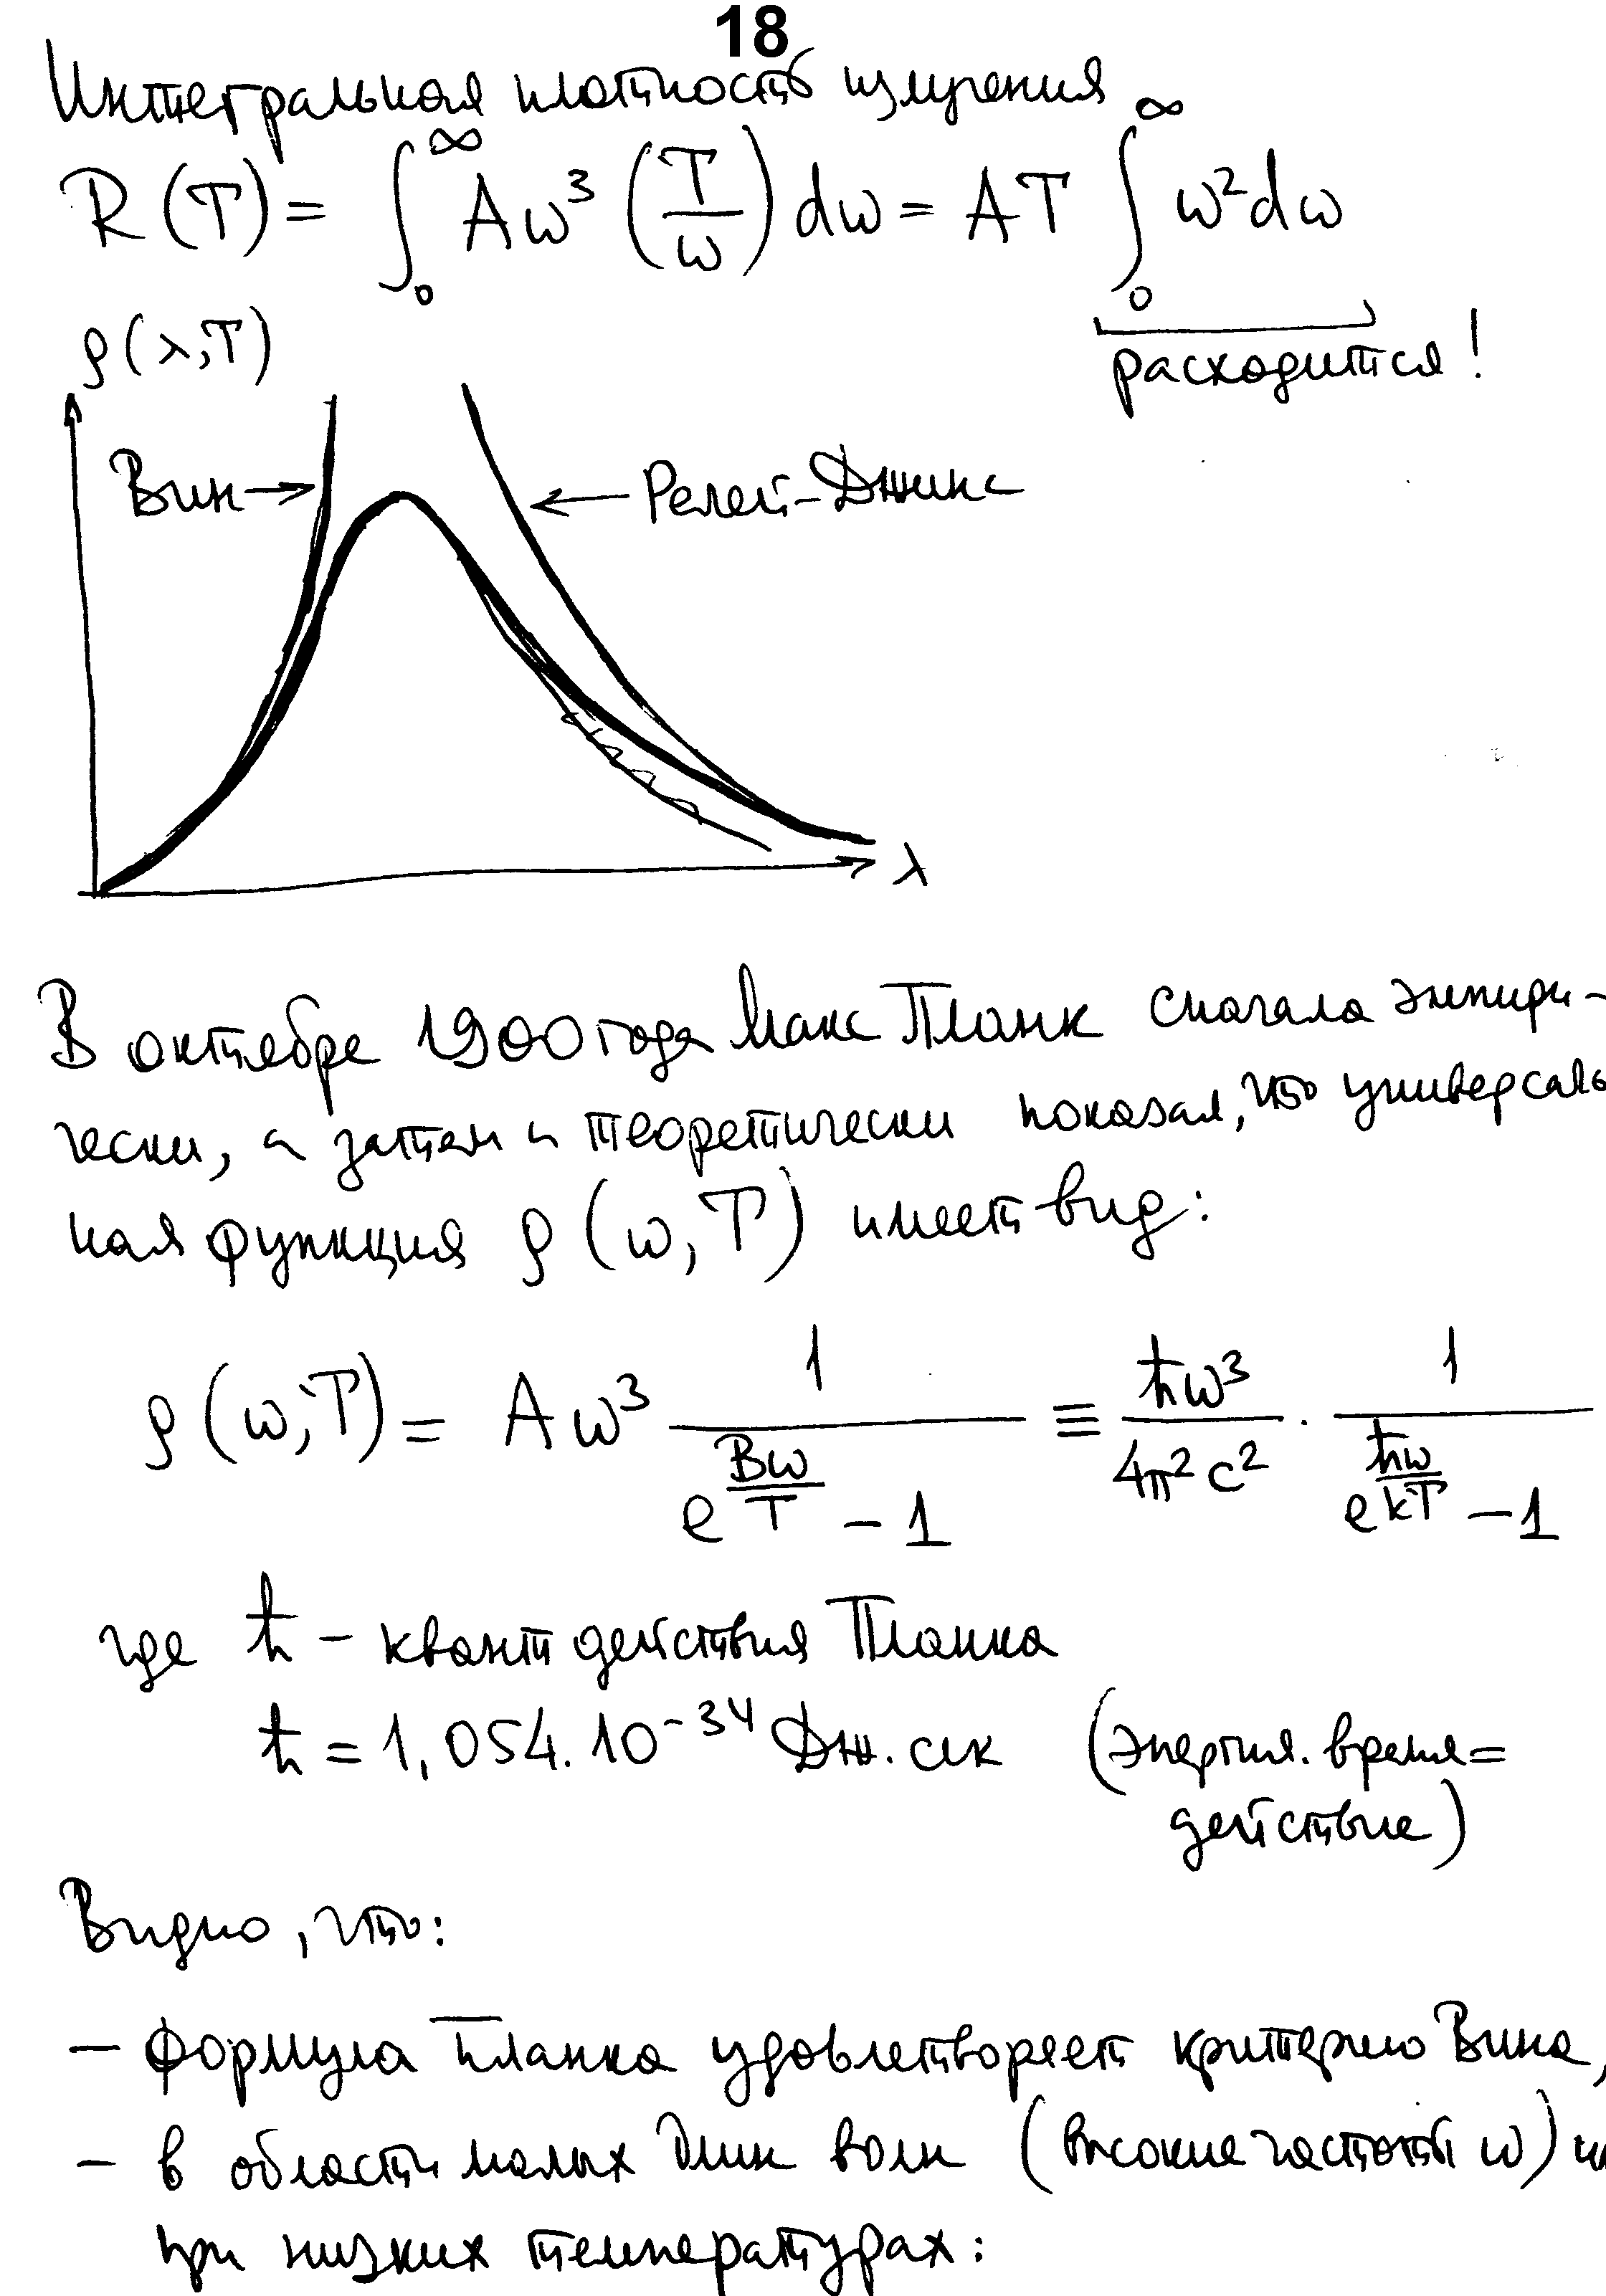 18
Интегральная плотность излучения
R(T) = ∫₀^∞ Aω³ (T/ω) dω = AT ∫₀^∞ ω²dω
расходится!
ρ(λ,T)
Вин → ← Релей-Джинс
λ
В октябре 1900 года Макс Планк сначала эмпири-
чески, а затем и теоретически показал, что универсаль
ная функция ρ(ω,T) имеет вид:
ρ(ω,T) = Aω³ 1/(e^(Bω/T) - 1) ≡ ħω³/(4π²c²) · 1/(e^(ħω/kT) - 1)
где ħ - квант действия Планка
ħ = 1,054.10⁻³⁴ Дж.сек (энергия.время=
действие)
Видно, что:
- формула Планка удовлетворяет критерию Вина,
- в области малых длин волн (высокие частоты ω) и
при низких температурах: